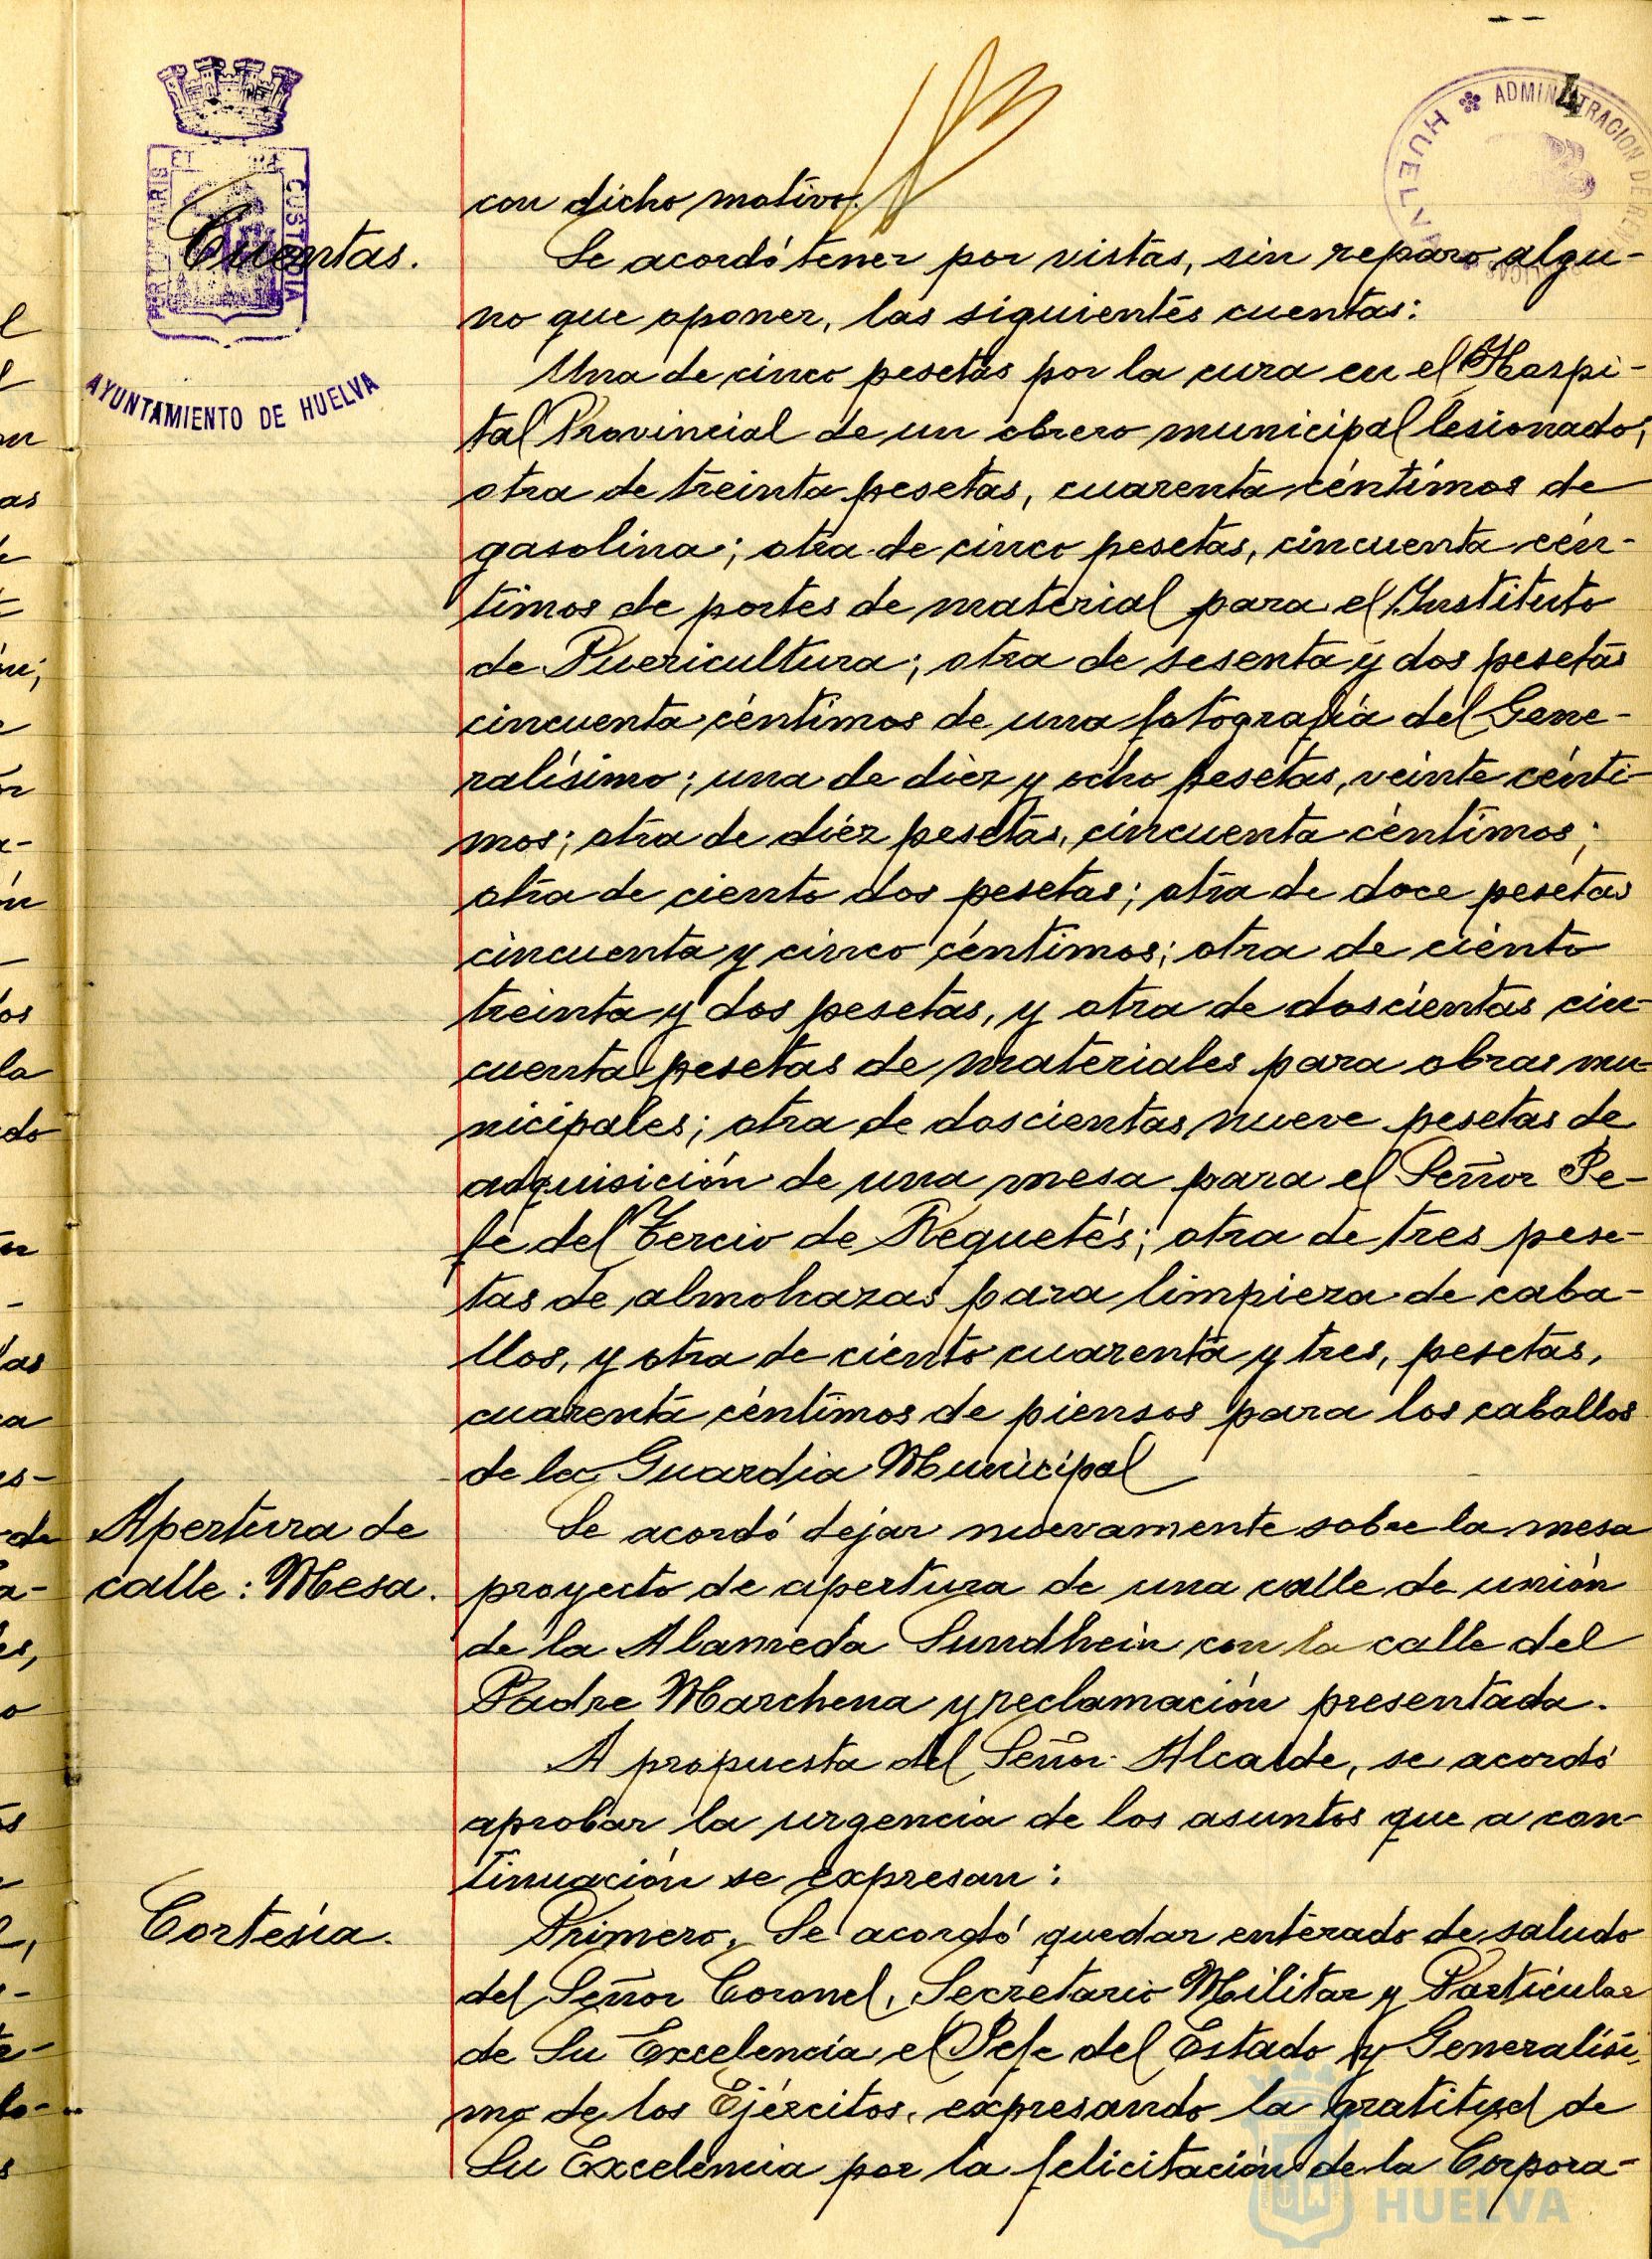 4
ADMINISTRACION DE
HUELVA
ET
CUSTODIA
AYUNTAMIENTO DE HUELVA
con dicho motivo.
Cuentas.
Se acordó tener por vistas, sin reparo algu-
no que oponer, las siguientes cuentas:
Una de cinco pesetas por la cura en el Hospi-
tal Provincial de un obrero municipal lesionado;
otra de treinta pesetas, cuarenta céntimos de
gasolina; otra de cinco pesetas, cincuenta cén-
timos de portes de material para el Instituto
de Puericultura; otra de sesenta y dos pesetas
cincuenta céntimos de una fotografía del Gene-
ralísimo; una de diez y ocho pesetas, veinte cénti-
mos; otra de diez pesetas, cincuenta céntimos;
otra de ciento dos pesetas; otra de doce pesetas
cincuenta y cinco céntimos; otra de ciento
treinta y dos pesetas, y otra de doscientas cin-
cuenta pesetas de materiales para obras mu-
nicipales; otra de doscientas nueve pesetas de
adquisición de una mesa para el Señor Je-
fe del Tercio de Requetés; otra de tres pese-
tas de almohazas para limpieza de caba-
llos, y otra de ciento cuarenta y tres, pesetas,
cuarenta céntimos de piensos para los caballos
de la Guardia Municipal
Apertura de
calle: Mesa.
Se acordó dejar nuevamente sobre la mesa
proyecto de apertura de una calle de unión
de la Alameda Sundhein con la calle del
Padre Marchena y reclamación presentada.
A propuesta del Señor Alcalde, se acordó
aprobar la urgencia de los asuntos que a con-
tinuación se expresan:
Cortesía.
Primero. Se acordó quedar enterado de saludo
del Señor Coronel, Secretario Militar y Particular
de Su Excelencia el Jefe del Estado y Generalísi-
mo de los Ejércitos, expresando la gratitud de
Su Excelencia por la felicitación de la Corpora-
HUELVA